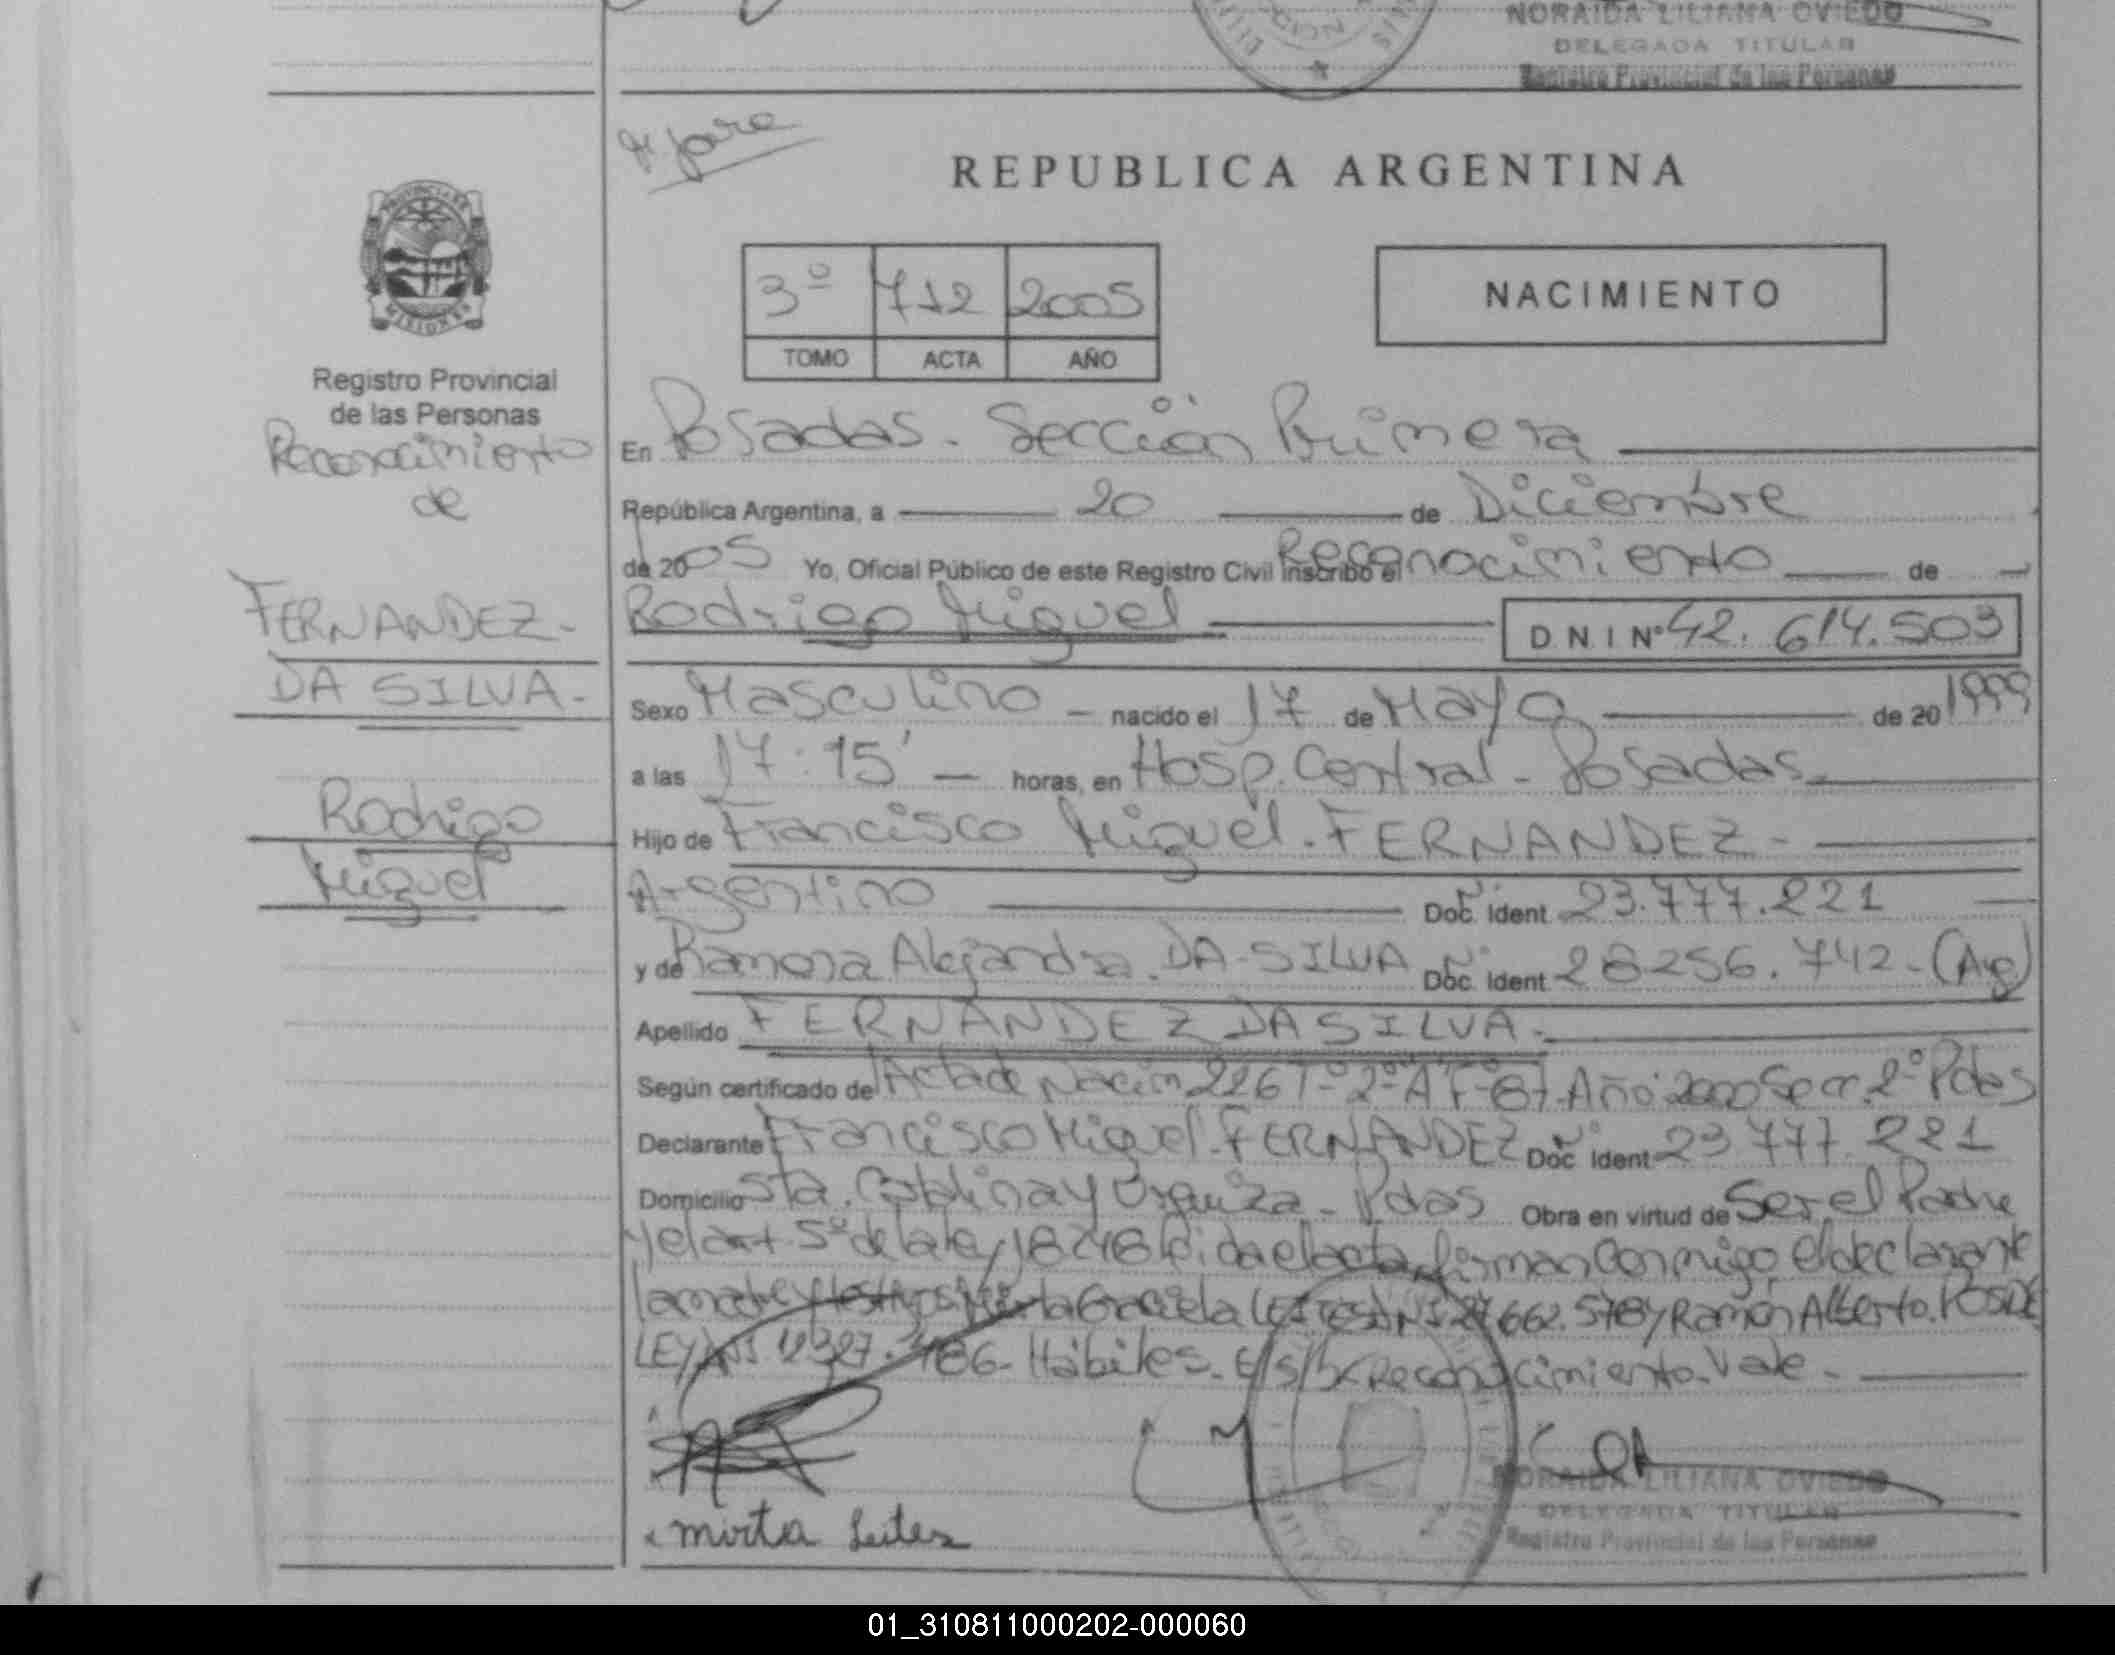 NORAIDA LILIANA OVIEDO
DELEGADA TITULAR
Registro Provincial de las Personas
REPUBLICA ARGENTINA
3º 712 2005
TOMO ACTA AÑO
NACIMIENTO
PROVINCIA DE
MISIONES
Registro Provincial
de las Personas
Reconocimiento
de
FERNANDEZ-
DA SILVA.-
Rodrigo
Miguel
En Posadas - Sección Primera
República Argentina, a 20 de Diciembre
de 2005 Yo, Oficial Público de este Registro Civil inscribo el Reconocimiento de
Rodrigo Miguel D.N.I Nº 42.614.503
Sexo Masculino - nacido el 17 de Mayo de 20 1999
a las 17:15' - horas, en Hosp. Central - Posadas
Hijo de Francisco Miguel. FERNANDEZ -
Argentino Doc. Ident 23.777.221
y de Ramona Alejandra. DA-SILVA Doc. Ident 28256.742-(Arg)
Apellido FERNANDEZ DA SILVA.
Según certificado de Acta de Nacim 226 Tº 2º Año 2000 Secc. 2º Pdas
Declarante Francisco Miguel. FERNANDEZ Doc Ident 23 777.221
Domicilio Sta. Catalina y Urquiza - Pdas Obra en virtud de Ser el Padre
y el art. 5º de la ley 18248 leida el acta, firman conmigo el declarante
la madre y testigos Mirta Graciela LEITES DNI 27.662.578 y Ramón Alberto.
LEY DNI 12327.486- Hábiles. E/S/ Reconocimiento. Vale -
NORAIDA LILIANA OVIEDO
DELEGADA TITULAR
Registro Provincial de las Personas
mirta Leites
01_310811000202-000060